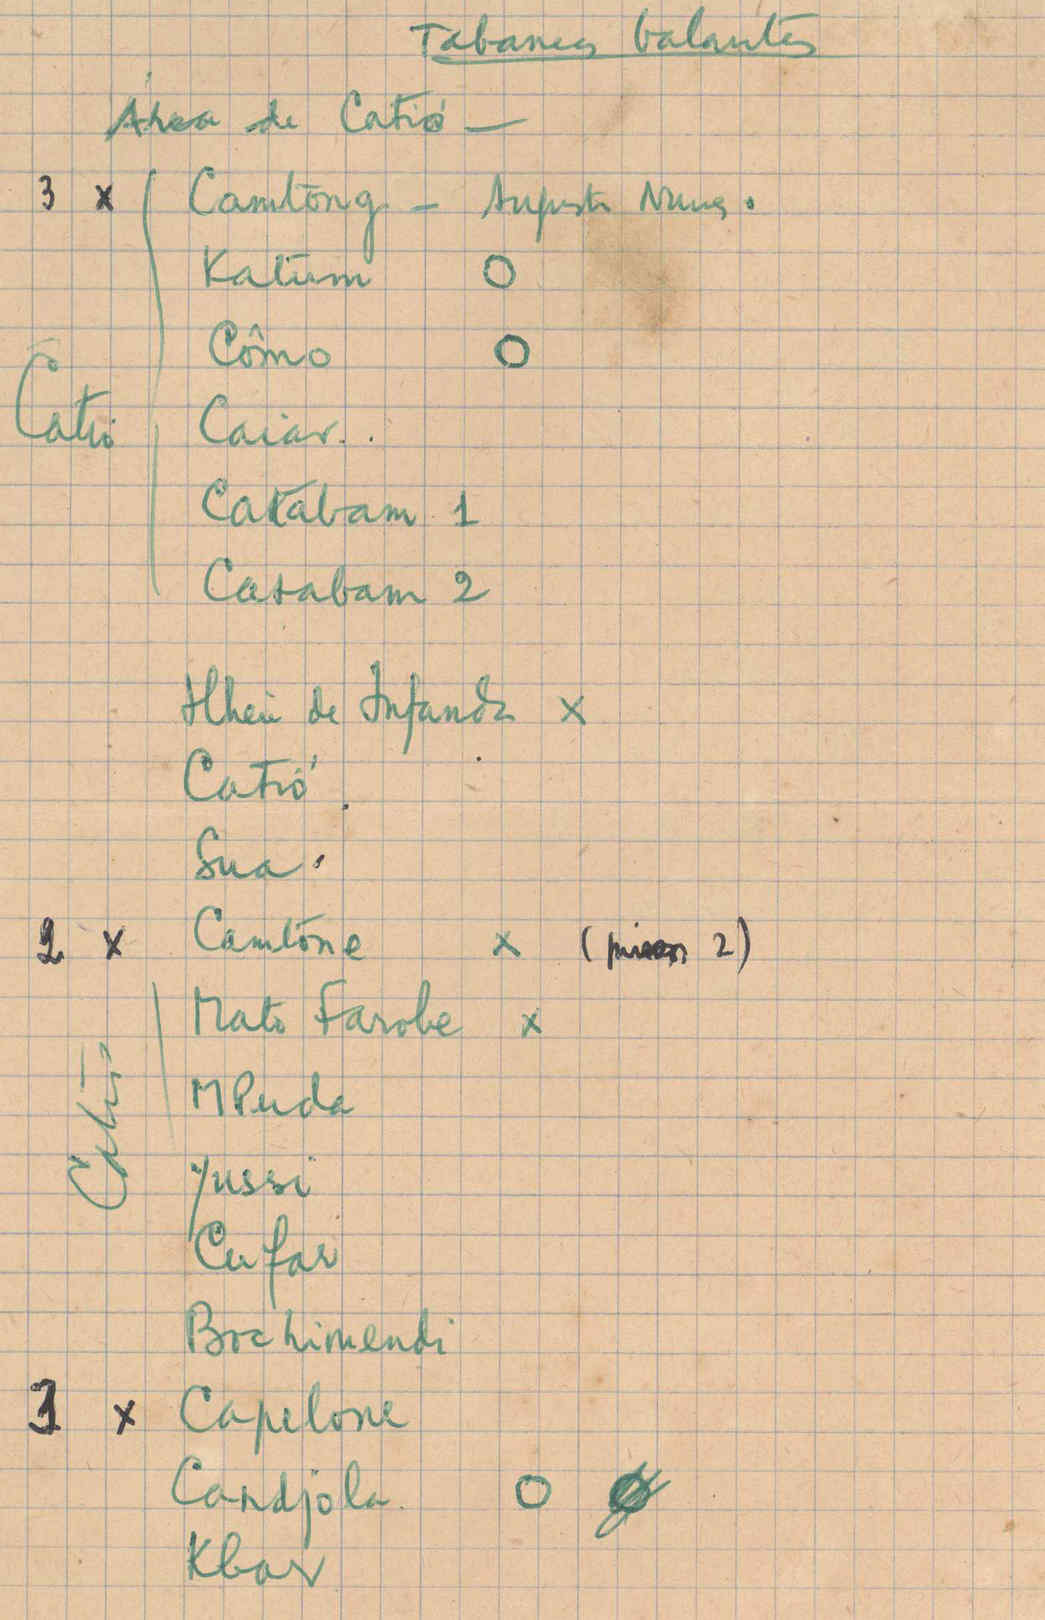 Tabancas balantas
Área de Catió —
3 x Camtong - Augusto Nunes.
Katum O
Cômo O
Catió
Caiar..
Catabam 1
Catabam 2
Ilheu de Infanda x
Catió.
Sua.
2 x Camtone x ( 2)
Mato Farobe x
MPuda
Catió
Yussi
Cufar
Bochimendi
x Capelone
Candjola. O
Kbar